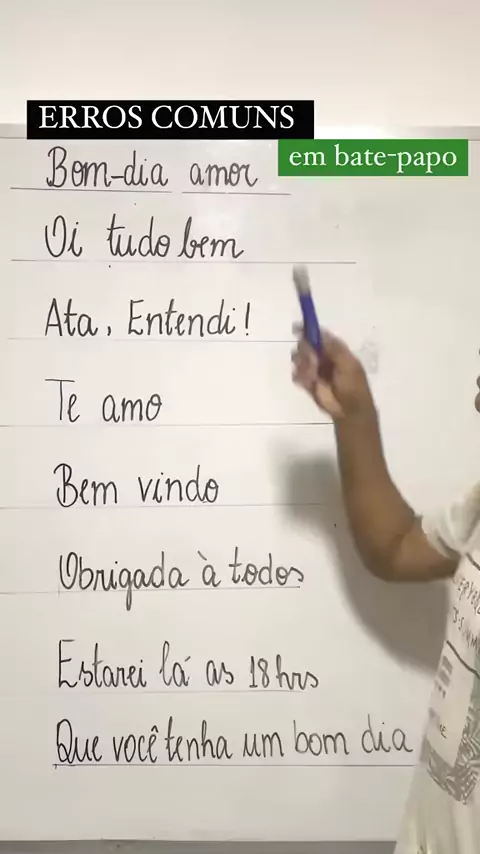 ERROS COMUNS
em bate-papo
Bom-dia amor
Oi tudo bem
Ata, Entendi!
Te amo
Bem vindo
Obrigada à todos
Estarei lá as 18hrs
Que você tenha um bom dia